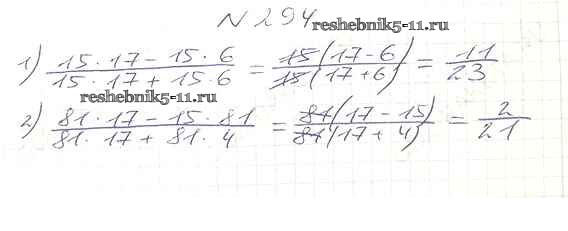 N 294
reshebnik5-11.ru
1) (15·17 - 15·6)/(15·17 + 15·6) = (15(17-6))/(15(17+6)) = 11/23
reshebnik5-11.ru
2) (81·17 - 15·81)/(81·17 + 81·4) = (81(17-15))/(81(17+4)) = 2/21